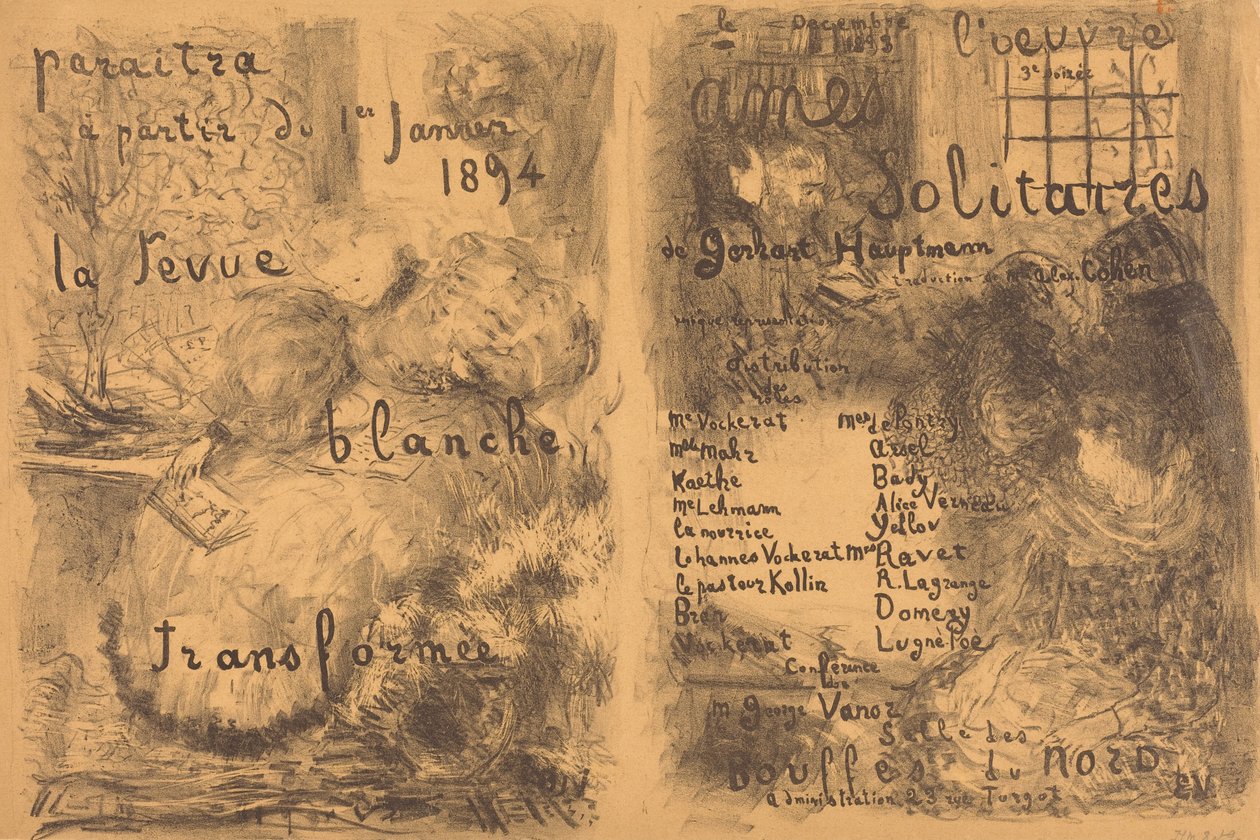 paraitra
à partir du 1er Janvier
1894
la revue
blanche
transformée
le Decembre
1893
l'oeuvre
3e soirée
ames
Solitaires
de Gerhart Hauptmann
traduction de Mr Alex. Cohen
unique représentation
distribution
des
rôles
Me Vockerat Mmes de Pontry
Mlle Mahr Arsel
Kaethe Bady
Me Lehmann Alice Verneau
la nourrice Yellov
Iohannes Vockerat Mrs Ravet
le pasteur Kollin R. Lagrange
Bran Domeny
Vockerat Lugné-Poe
Conférence
de
M george Vanor
Salle des
Bouffes du NORD
administration 23 rue Turgot
EV